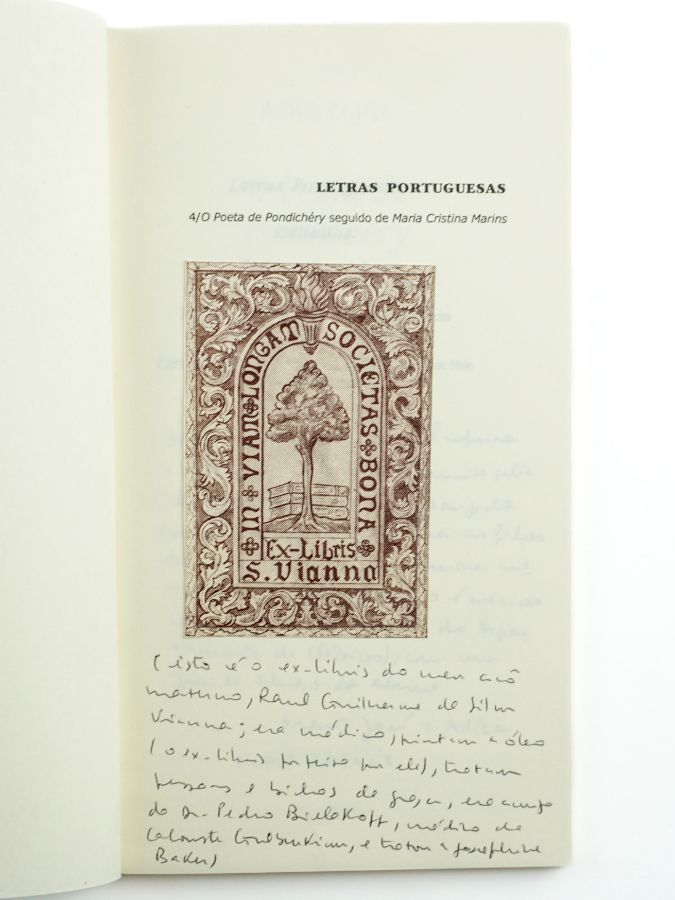 LETRAS PORTUGUESAS
4/O Poeta de Pondichéry seguido de Maria Cristina Marins
IN VIAM LONGAM SOCIETAS BONA
Ex-Libris
S. Vianna
(isto é o ex-libris do meu avô
materno, Raul Guilherme da Silva
Vianna; era médico, pintava a óleo
(o ex-libris foi feito por ele), tratava
pessoas e bichos de graça, era amigo
do Dr. Pedro Bielakoff, médico de
Calouste Gulbenkian, e tratou a Josephine
Baker)